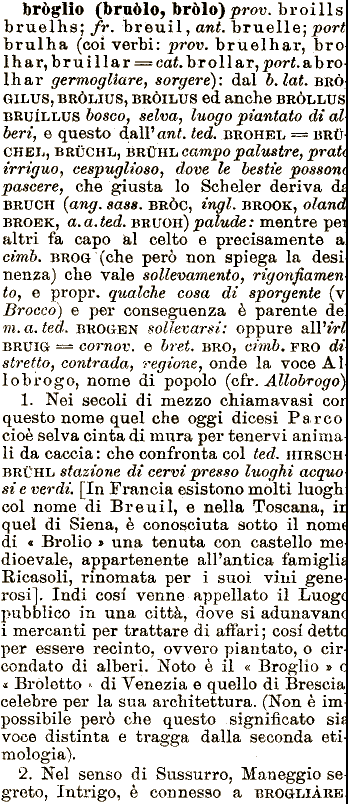 bròglio (bruòlo, bròlo) prov. broills
bruelhs; fr. breuil, ant. bruelle; port
brulha (coi verbi: prov. bruelhar, bro
lhar, bruillar = cat. brollar, port. abro
lhar germogliare, sorgere): dal b. lat. BRÒ
GILUS, BRÒLIUS, BRÒILUS ed anche BRÒLLUS
BRUÍLLUS bosco, selva, luogo piantato di al
beri, e questo dall'ant. ted. BROHEL = BRÜ
CHEL, BRÜCHL, BRÜHL campo palustre, prat
irriguo, cespuglioso, dove le bestie posson
pascere, che giusta lo Scheler deriva d
BRUCH (ang. sass. BRÒC, ingl. BROOK, oland
BROEK, a. a. ted. BRUOH) palude: mentre pe
altri fa capo al celto e precisamente a
cimb. BROG (che però non spiega la desi
nenza) che vale sollevamento, rigonfiamen
to, e propr. qualche cosa di sporgente (v
Brocco) e per conseguenza è parente de
m. a. ted. BROGEN sollevarsi: oppure all'irl
BRUIG = cornov. e bret. BRO, cimb. FRO di
stretto, contrada, regione, onde la voce Al
lobrogo, nome di popolo (cfr. Allobrogo)
1. Nei secoli di mezzo chiamavasi con
questo nome quel che oggi dicesi Parco
cioè selva cinta di mura per tenervi anima-
li da caccia: che confronta col ted. HIRSCH
BRÜHL stazione di cervi presso luoghi acquo
si e verdi. [In Francia esistono molti luogh
col nome di Breuil, e nella Toscana, in
quel di Siena, è conosciuta sotto il nome
di « Brolio » una tenuta con castello me
dioevale, appartenente all'antica famiglia
Ricasoli, rinomata per i suoi vini gene
rosi]. Indi cosí venne appellato il Luogo
pubblico in una città, dove si adunavan
i mercanti per trattare di affari; cosí detto
per essere recinto, ovvero piantato, o cir-
condato di alberi. Noto è il « Broglio » o
« Broletto » di Venezia e quello di Brescia
celebre per la sua architettura. (Non è im-
possibile però che questo significato sia
voce distinta e tragga dalla seconda eti-
mologia).
2. Nel senso di Sussurro, Maneggio se-
greto, Intrigo, è connesso a BROGLIÀRE